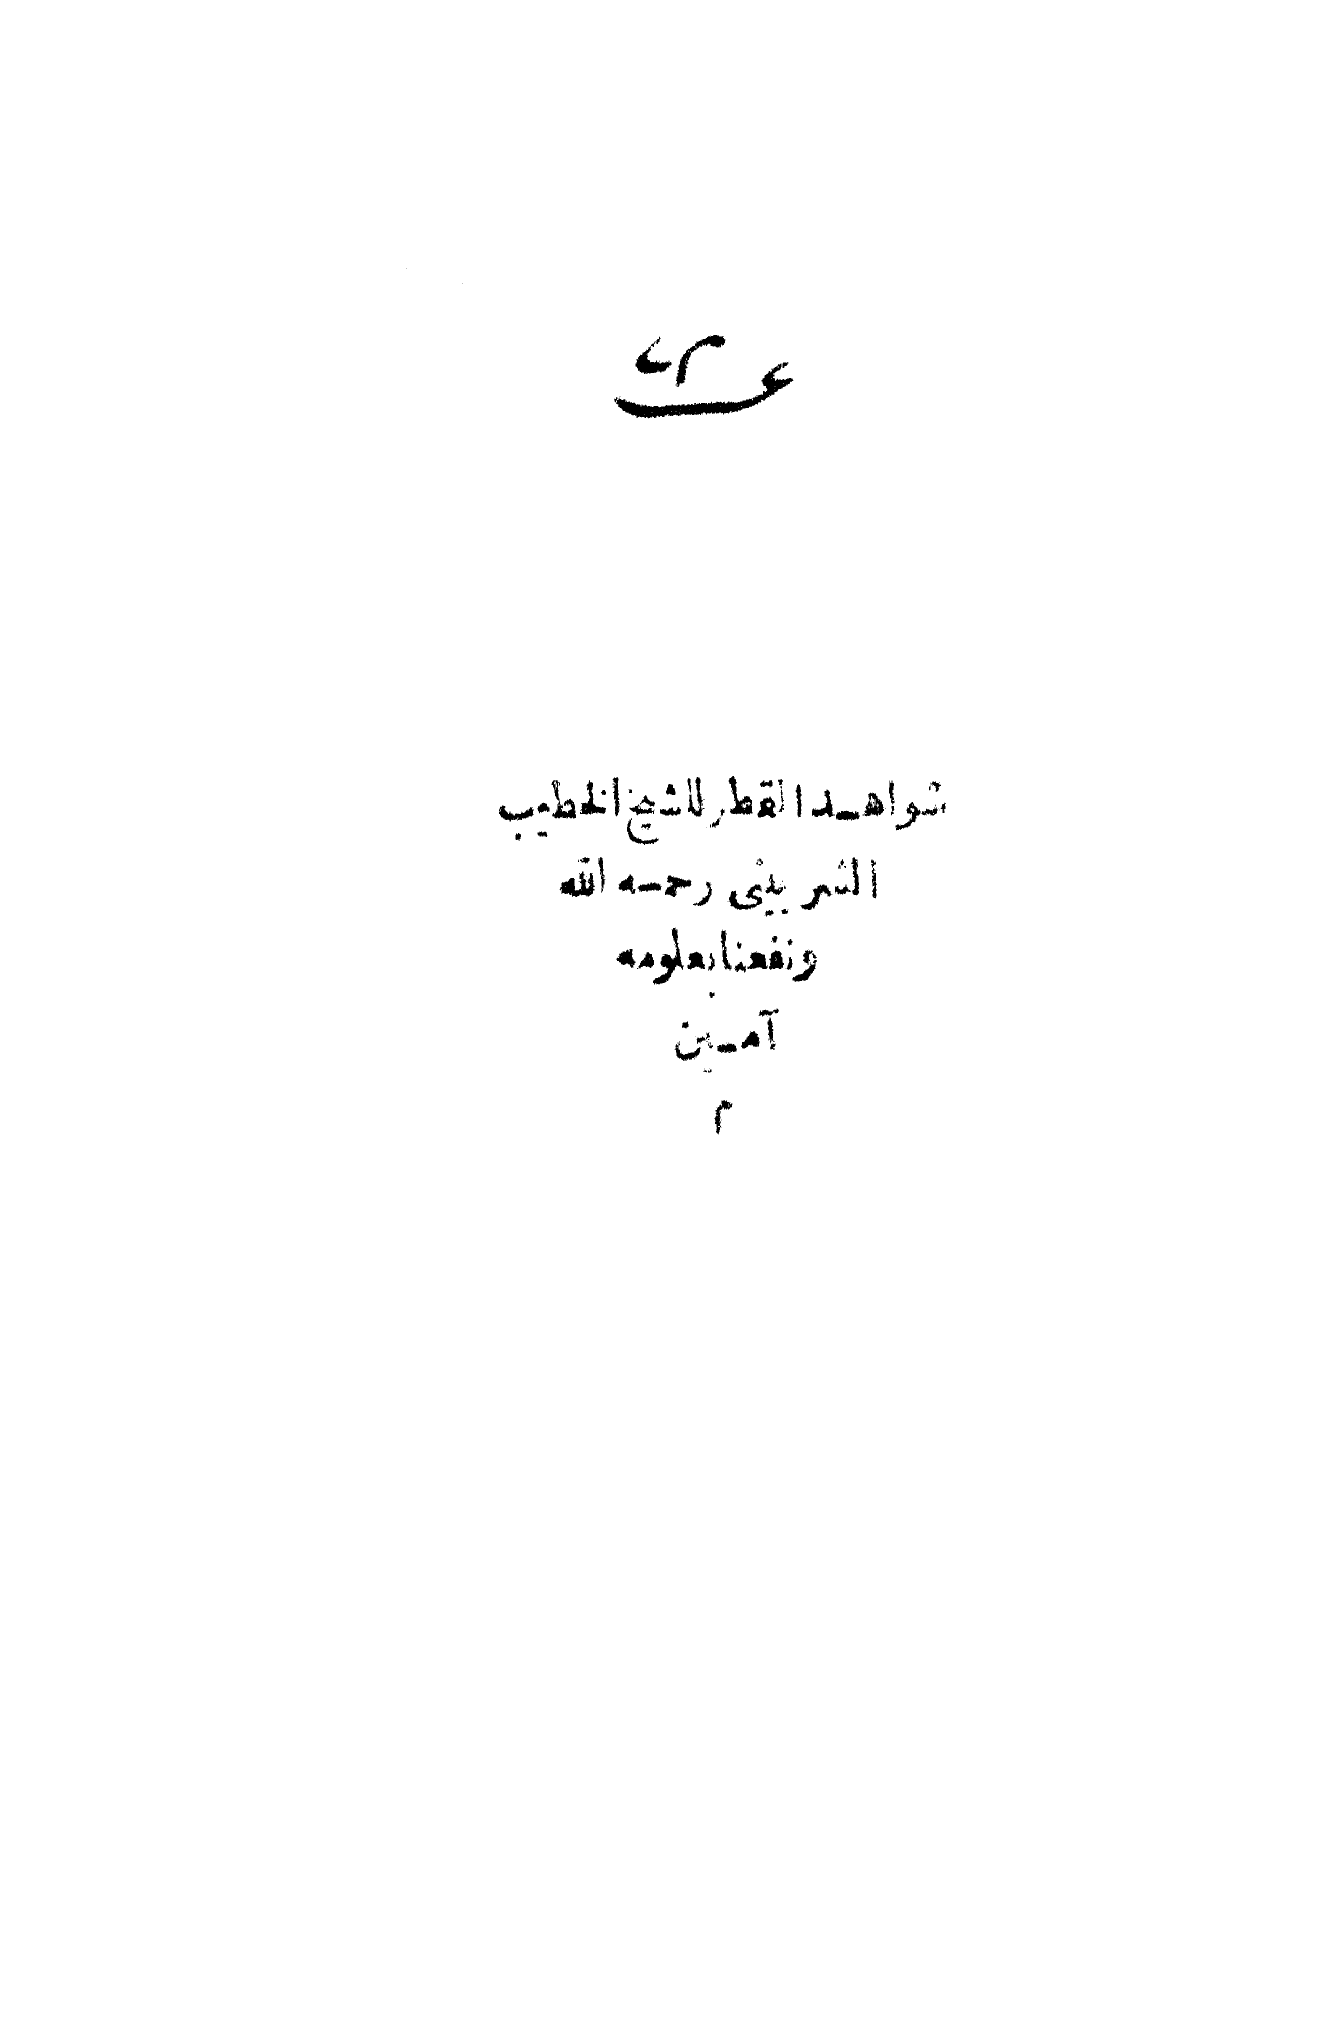 شواهد القطر للشيخ الخطيب
الشربيني رحمه الله
ونفعنا بعلومه
آمين
م